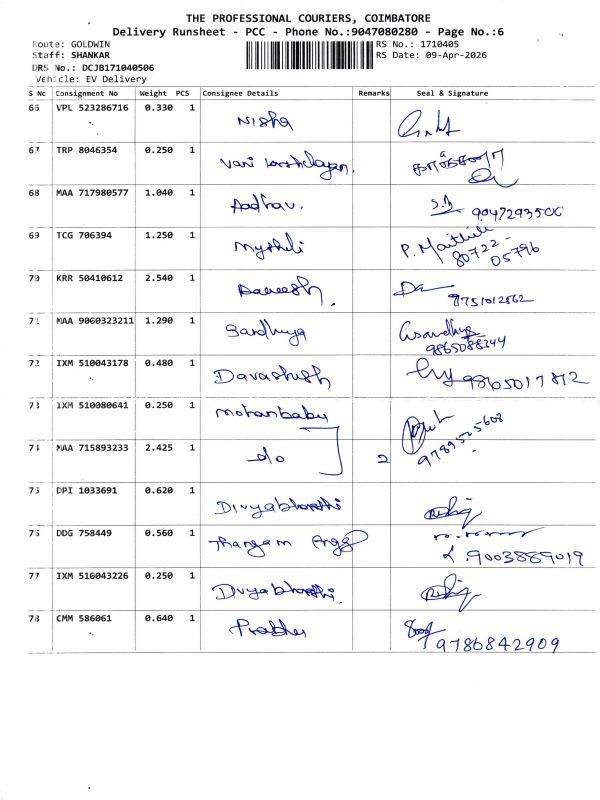 THE PROFESSIONAL COURIERS, COIMBATORE
Delivery Runsheet - PCC - Phone No.:9047080280 - Page No.:6
Route: GOLDWIN RS No.: 1710405
Staff: SHANKAR RS Date: 09-Apr-2026
DRS No.: DCJB171040506
Vehicle: EV Delivery
S No Consignment No Weight PCS Consignee Details Remarks Seal & Signature
66 VPL 523286716 0.330 1 Nisha
67 TRP 8046354 0.250 1 Vani
68 MAA 717980577 1.040 1 Aadhav. 9047293500
69 TCG 706394 1.250 1 Mythili P. Maithili
80722-
05796
70 KRR 50410612 2.540 1 9751012562
71 MAA 9060323211 1.290 1 Sandhiya
9865088344
72 IXM 510043178 0.480 1 Davashish 9865017812
73 IXM 510080641 0.250 1 Mohanbabu
9789525608
74 MAA 715893233 2.425 1 do 2
75 DPI 1033691 0.620 1 Divyabharathi
76 DDG 758449 0.560 1 Thangam
9003889019
77 IXM 516043226 0.250 1 Divyabharathi.
78 CMM 586061 0.640 1 Prabhu
9786842909